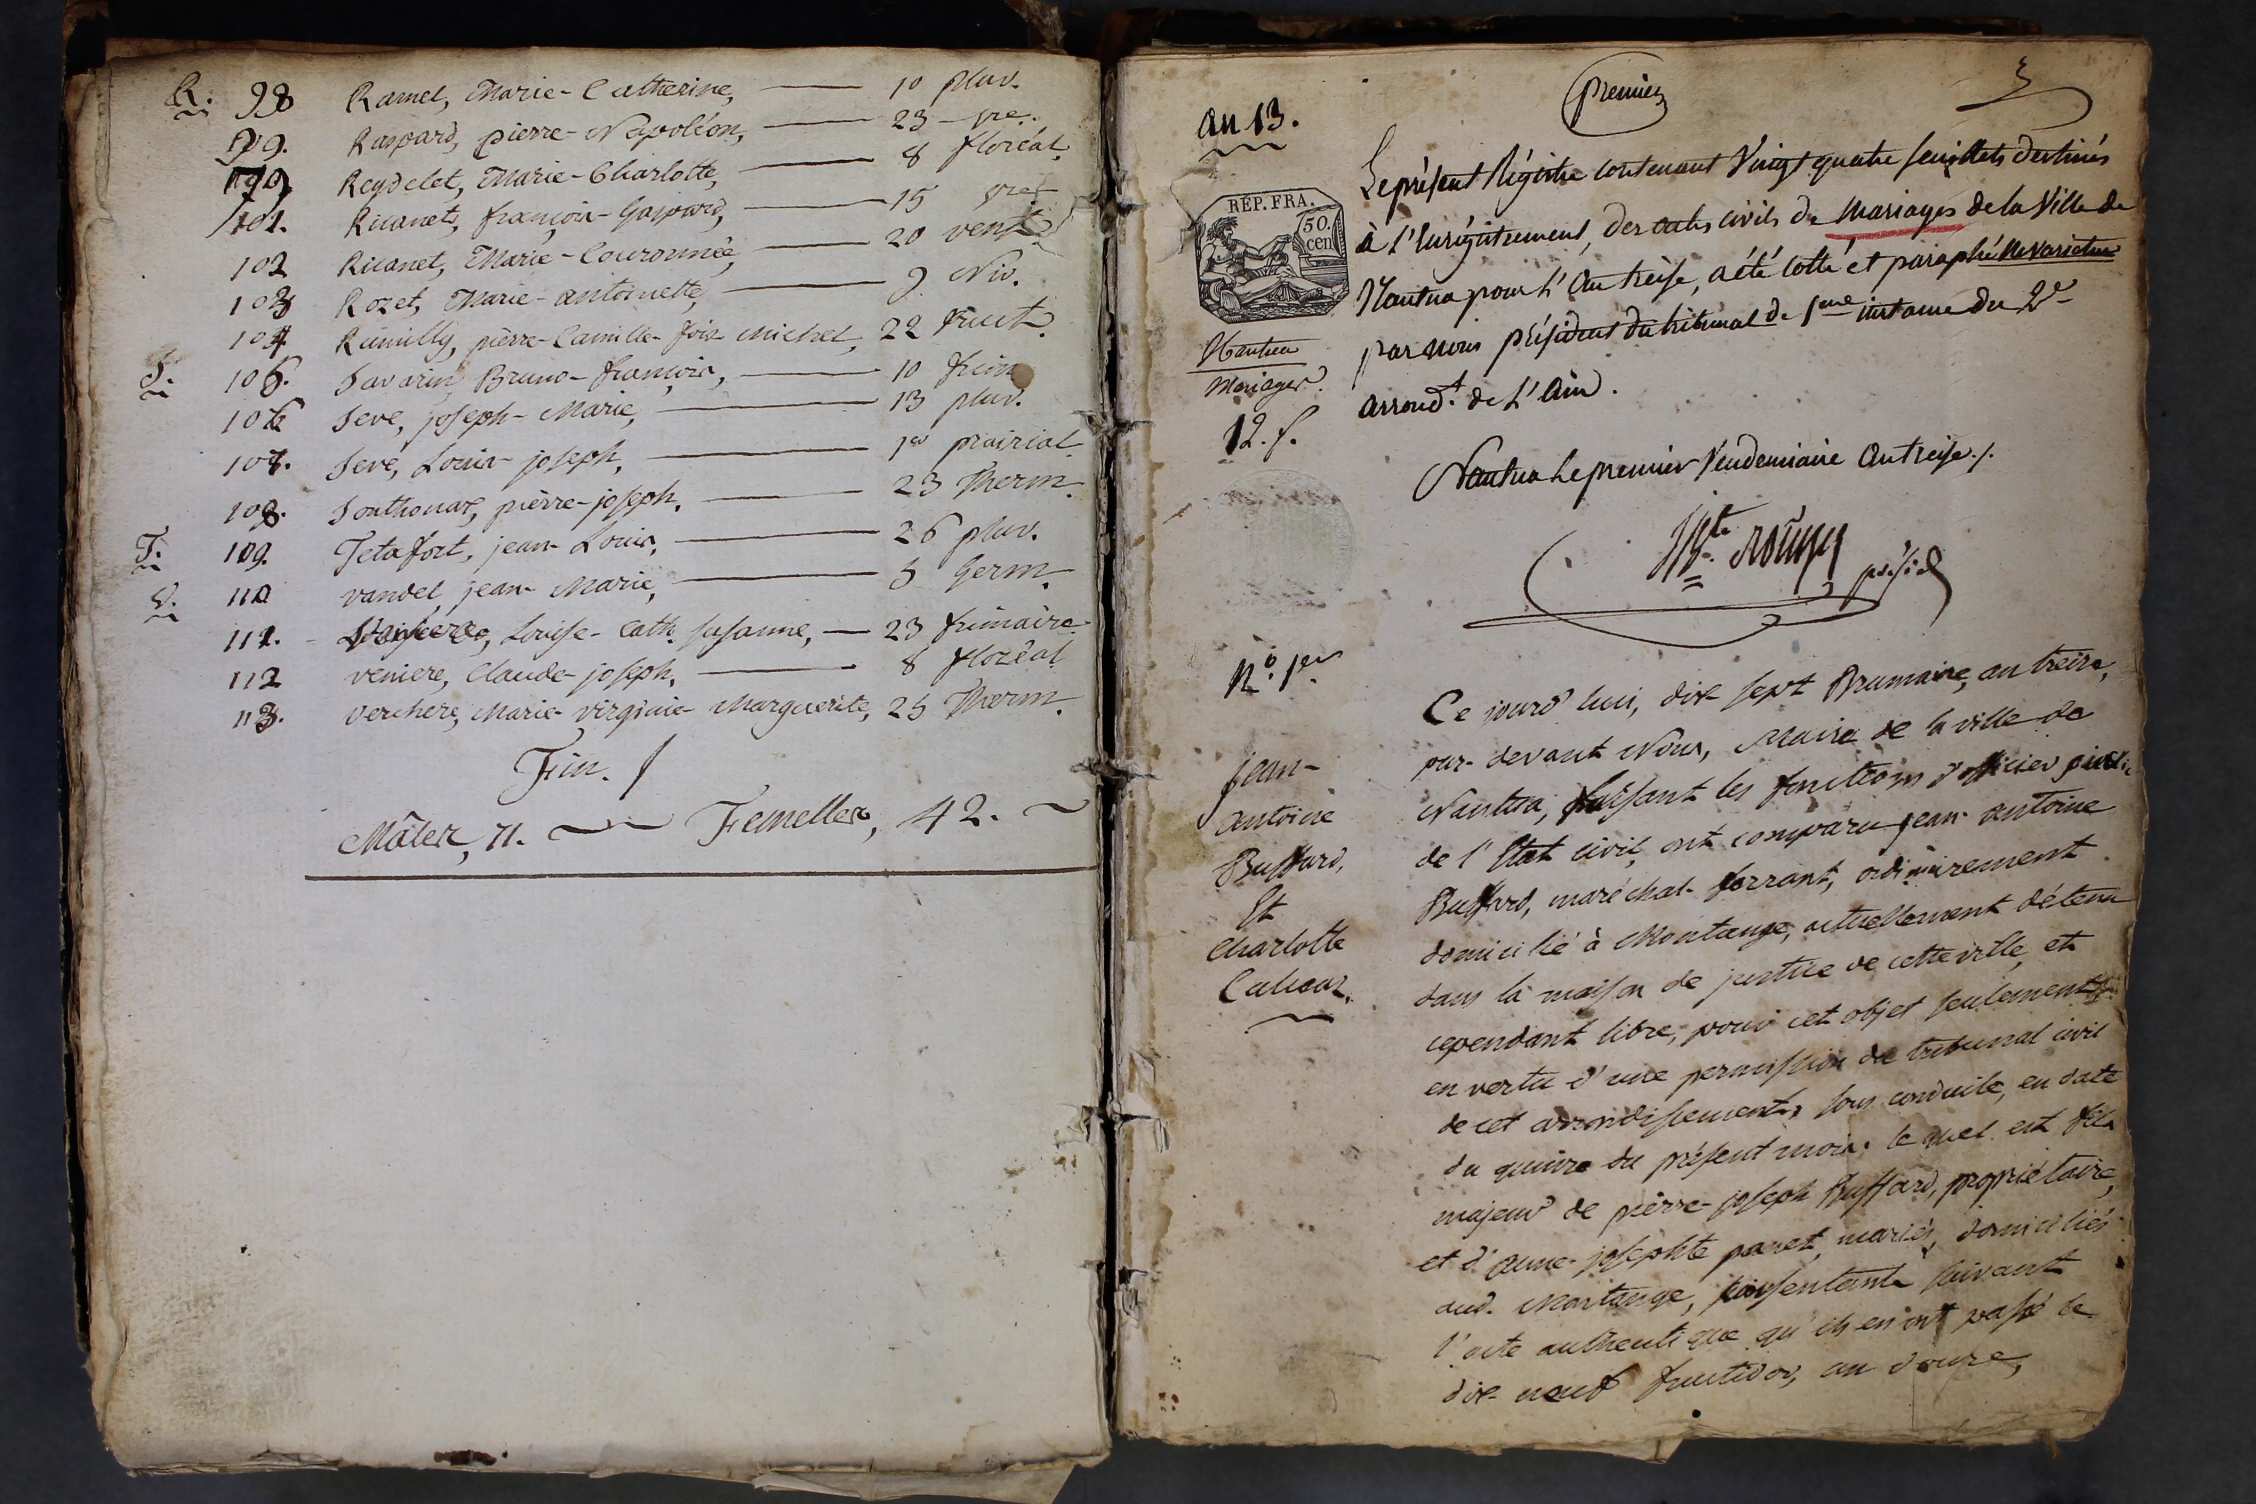 R. 98 Ramel, Marie-Catherine, 10 pluv.
99. Raspard, pierre-Napoléon, 23 - vre.
100 Reydelet, Marie-Charlotte, 8 floréal.
101. Ricanet, françois-Gaspard, 15 vre
102 Ricanet, Marie-Couronnée, 20 vent.
103 Rozet, Marie-antoinette, 9. Niv.
104 Rumilly, pièrre-Camille-fois Michel, 22 fruct.
S. 105. Savarin Bruno-françois, 10 frim
106 Seve, joseph-Marie, 13 pluv.
107. Seve, Louis-joseph, 1er prairial
108. Sonthonax, pièrre-joseph, 23 Therm.
T. 109. Tetafort, jean-Louis, 26 pluv.
V. 110 vandel, jean-Marie, 5 Germ.
111. Louise-Cath. susanne, 23 frimaire
112 veniere, Claude-joseph, 8 floréal
113. verchere, Marie-virginie-Marguerite, 25 Therm.
Fin.
Mâles, 71. Femelles, 42.
premier
3
an 13.
REP. FRA.
50. cen
Nantua
Mariages.
12. f.
Le présent Régistre contenant Vingt quatre feuillets destinés
à l'Enrégistrement, des actes civils de Mariages de la Ville de
Nantua pour l'An treise, a été cotté et paraphé Nevarietur
par nous président du tribunal de 1ere instance du 2e
arrond.t de l'Ain.
Nantua le premier Vendemiaire An treise.
présid
N.o 1er
jean-
antoine
Buffard,
Et
Charlotte
Ce jourd'hui, dix sept Brumaire, an treize,
par-devant Nous, Maire de la ville de
Nantua, faisant les fonctions d'officier public
de l'Etat civil, ont comparu jean-antoine
Buffard, maréchal-ferrant, ordinairement
domicilié à Montange, actuellement détenu
dans la maison de justice de cette ville, et
cependant libre, pour cet objet seulement
en vertu d'une permission du tribunal civil
de cet arrondissement, sous conduite, en date
du quinze du présent mois. le quel est fils
majeur de pièrre-joseph Buffard, propriétaire,
et d'anne-josephte panet, mariés, domiciliés
aud. Montange, consentants suivant
l'acte authentique qu'ils en ont passé le
dix-neuf fructidor, an douze,